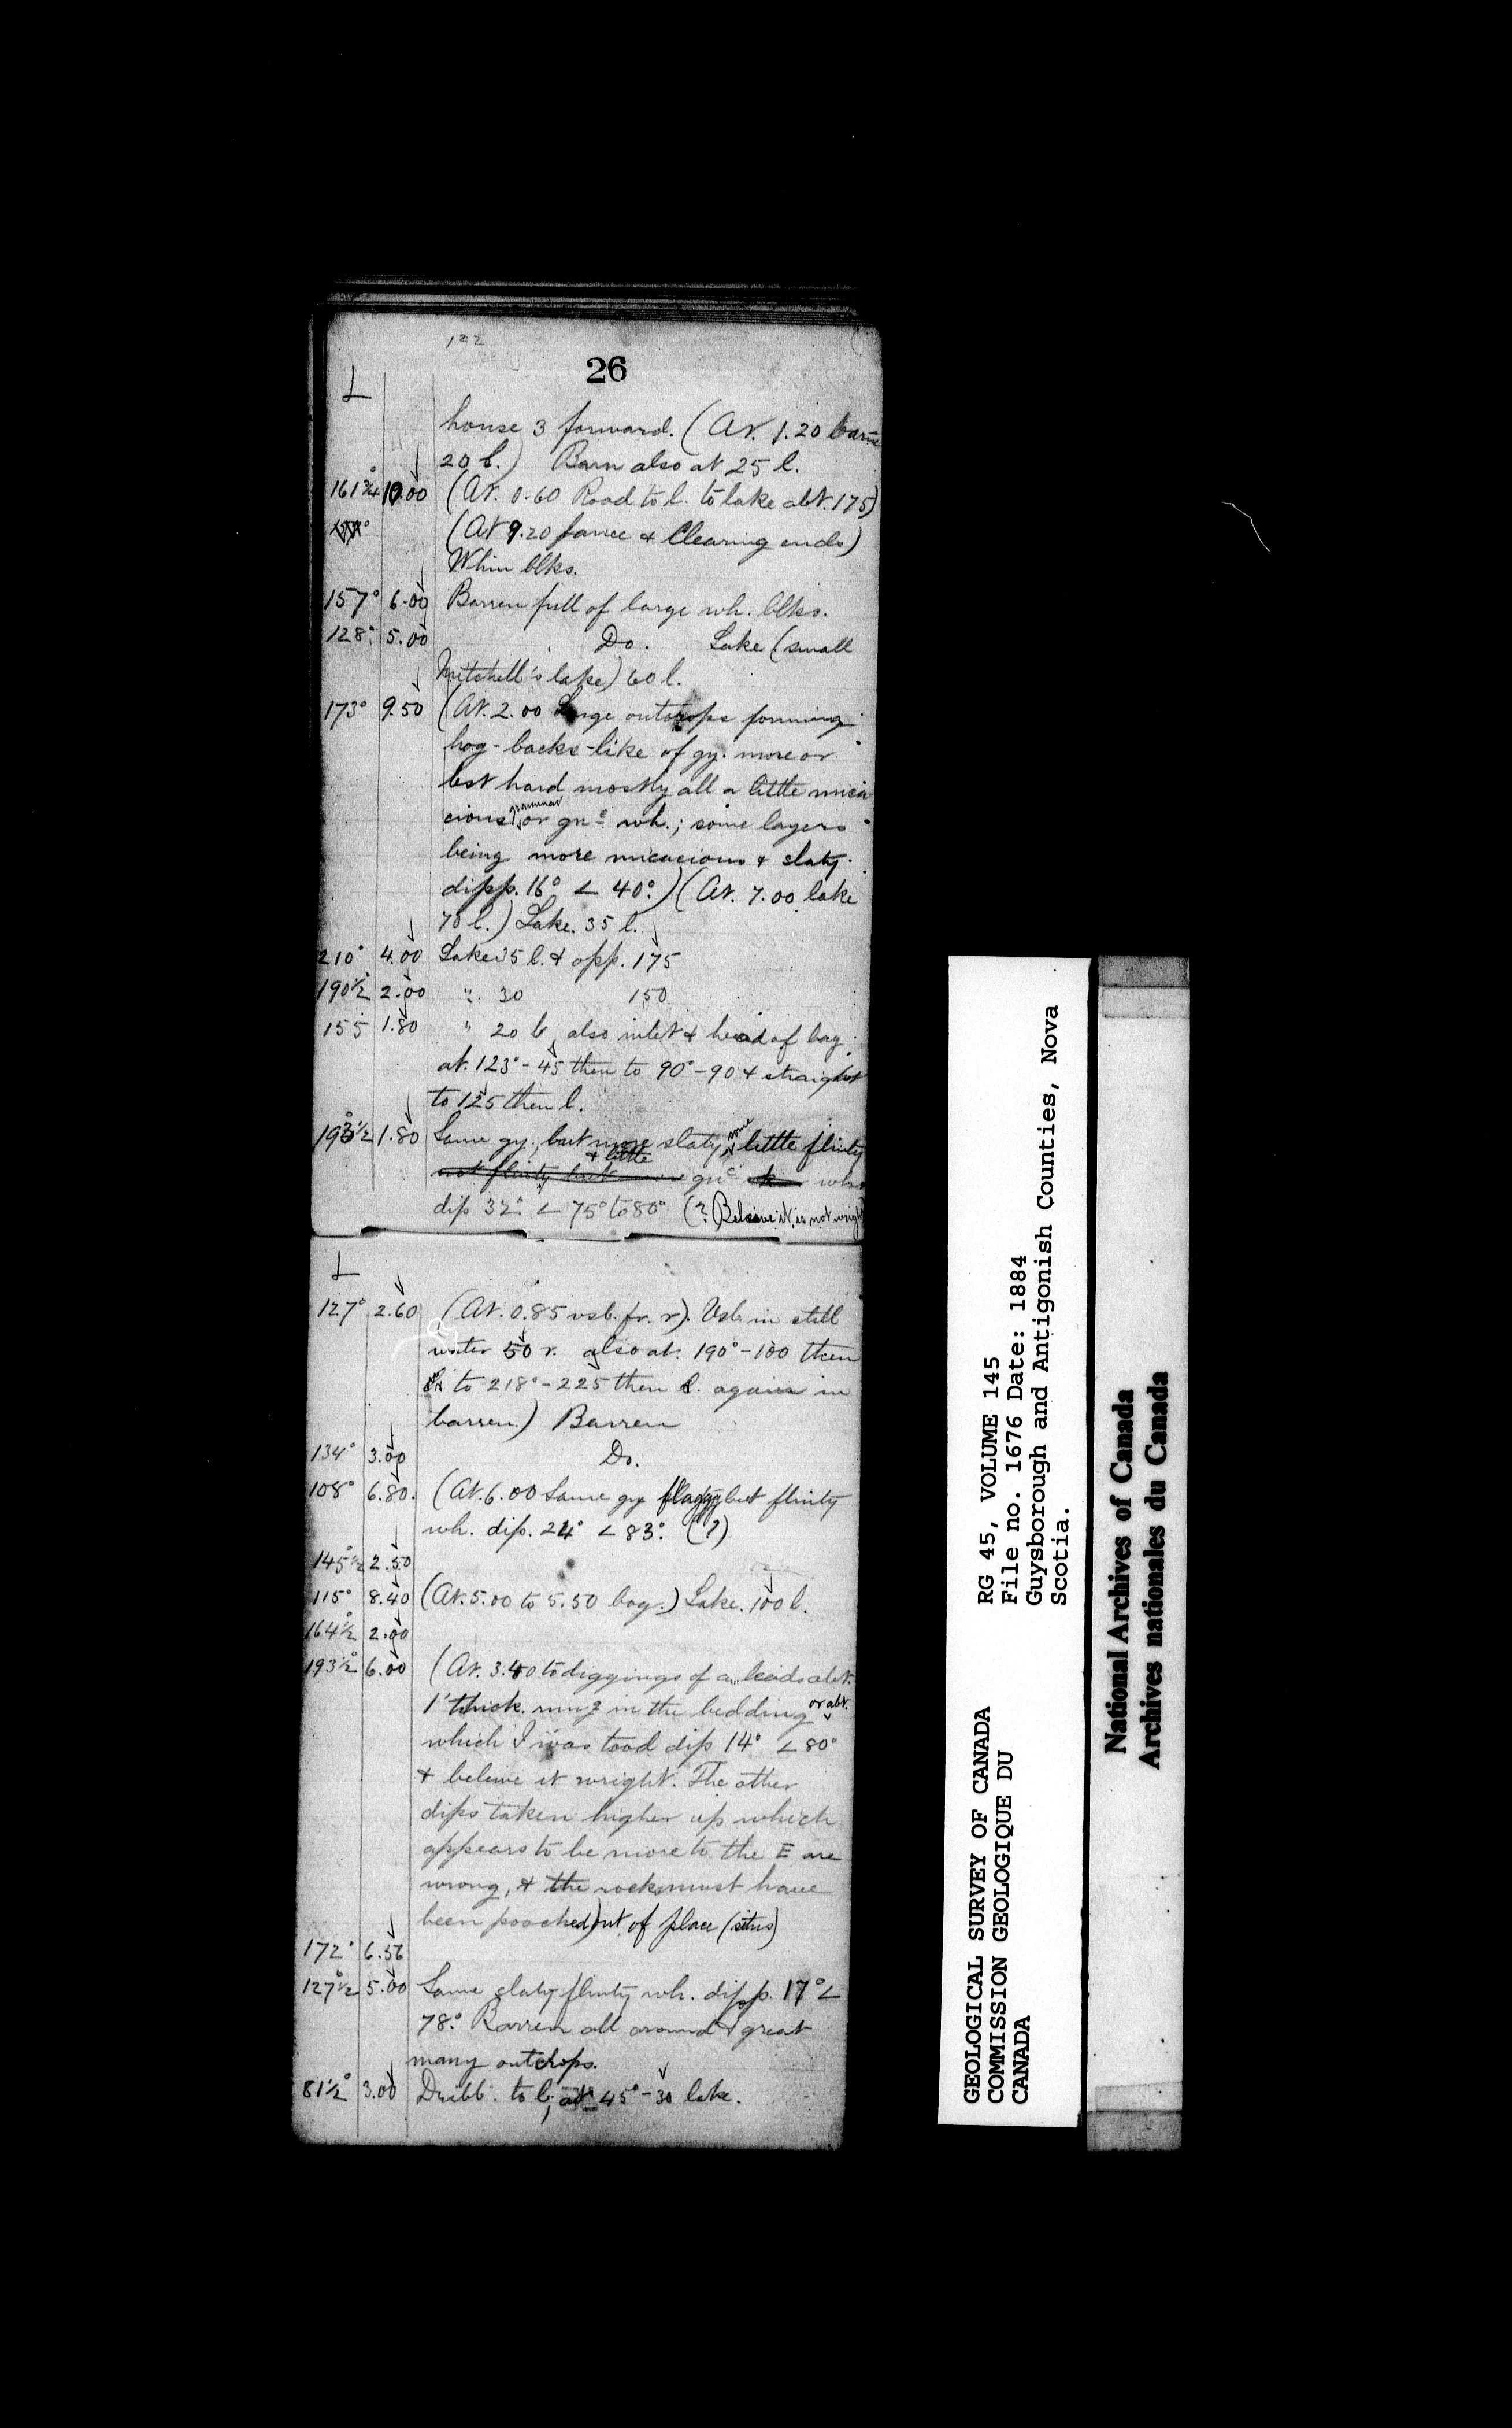 122
26
L
house 3 forward. (At. 1.20 barn
20 l.) Barn also at 25 l.
161 3/4° 10.00 (At. 0.60 Road to l. to lake abt. 175)
(At 9.20 fence & Clearing ends)
Whin blks.
157° 6.00 Barren full of large wh. blks.
128° 5.00 Do. Lake (small
Mitchell's lake) 60 l.
173° 9.50 (At. 2.00 Large outcrops forming
hog-backs-like of gy. more or
lest hard mostly all a little mica
cious or gn^e wh.; some layers
being more micacious & slaty.
dipp. 16° < 40°.) (At. 7.00 lake
70 l.) Lake. 35 l.
210° 4.00 Lake 35 l. & opp. 175
190 1/2 2.00 " 30 150
155 1.80 " 20 l, also inlet & head of bay
at. 123° - 45 then to 90° - 90 & straight
to 125 then l.
193 1/2° 1.80 Same gy., but more slaty, some little flinty
& little
not flinty but gn^e wh.
dip 32°. < 75° to 80° (? Beleive it is not wright
L
127° 2.60 (At. 0.85 vsb. fr. r). Vsb. in still
water 50 r. also at. 190° - 100 then
to 218° - 225 then l. again in
barren.) Barren
134° 3.00 Do.
108° 6.80. (At. 6.00 Same gy. flaggy but flinty
wh. dip. 24° < 83°. (?)
145 1/2° 2.50
115° 8.40 (At. 5.00 to 5.50 bog.) Lake. 100 l.
164 1/2° 2.00
193 1/2° 6.00 (At. 3.40 to diggings of a leads abt.
1' thick. runng in the bedding or abt.
which I was toad dip 14° < 80°
& beleive it wright. The other
dips taken higher up which
appears to be more to the E are
wrong, & the rocks must have
been pooched) out of place (situs)
172° 6.56
127 1/2° 5.00 Same slaty flinty wh. dipp. 17° <
78°. Barren all around & great
many outcrops.
81 1/2° 3.00 Dribb. to l, at 45° - 30 lake.
GEOLOGICAL SURVEY OF CANADA
COMMISSION GEOLOGIQUE DU
CANADA
RG 45, VOLUME 145
File no. 1676 Date: 1884
Guysborough and Antigonish Counties, Nova
Scotia.
National Archives of Canada
Archives nationales du Canada